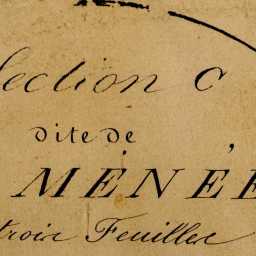 Section C
dite de
MÉNÉE
trois Feuilles